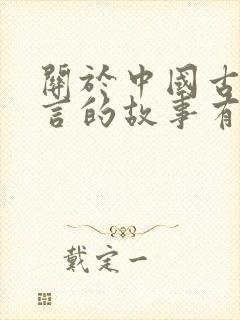 關於中國古
言的故事有
戴定一